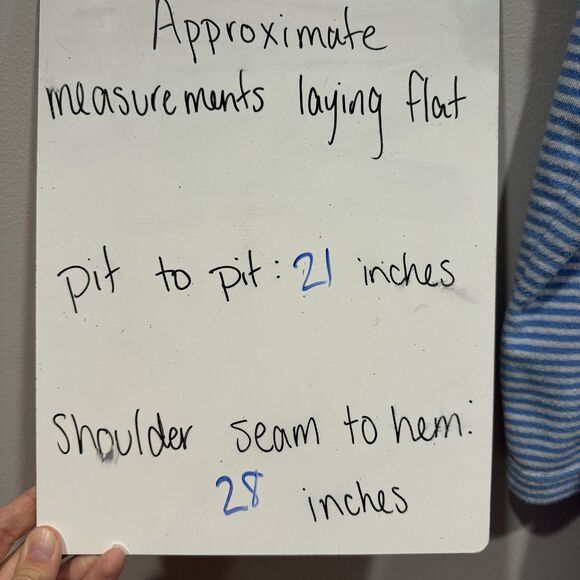 Approximate
measurements laying flat
pit to pit: 21 inches
Shoulder seam to hem:
28 inches